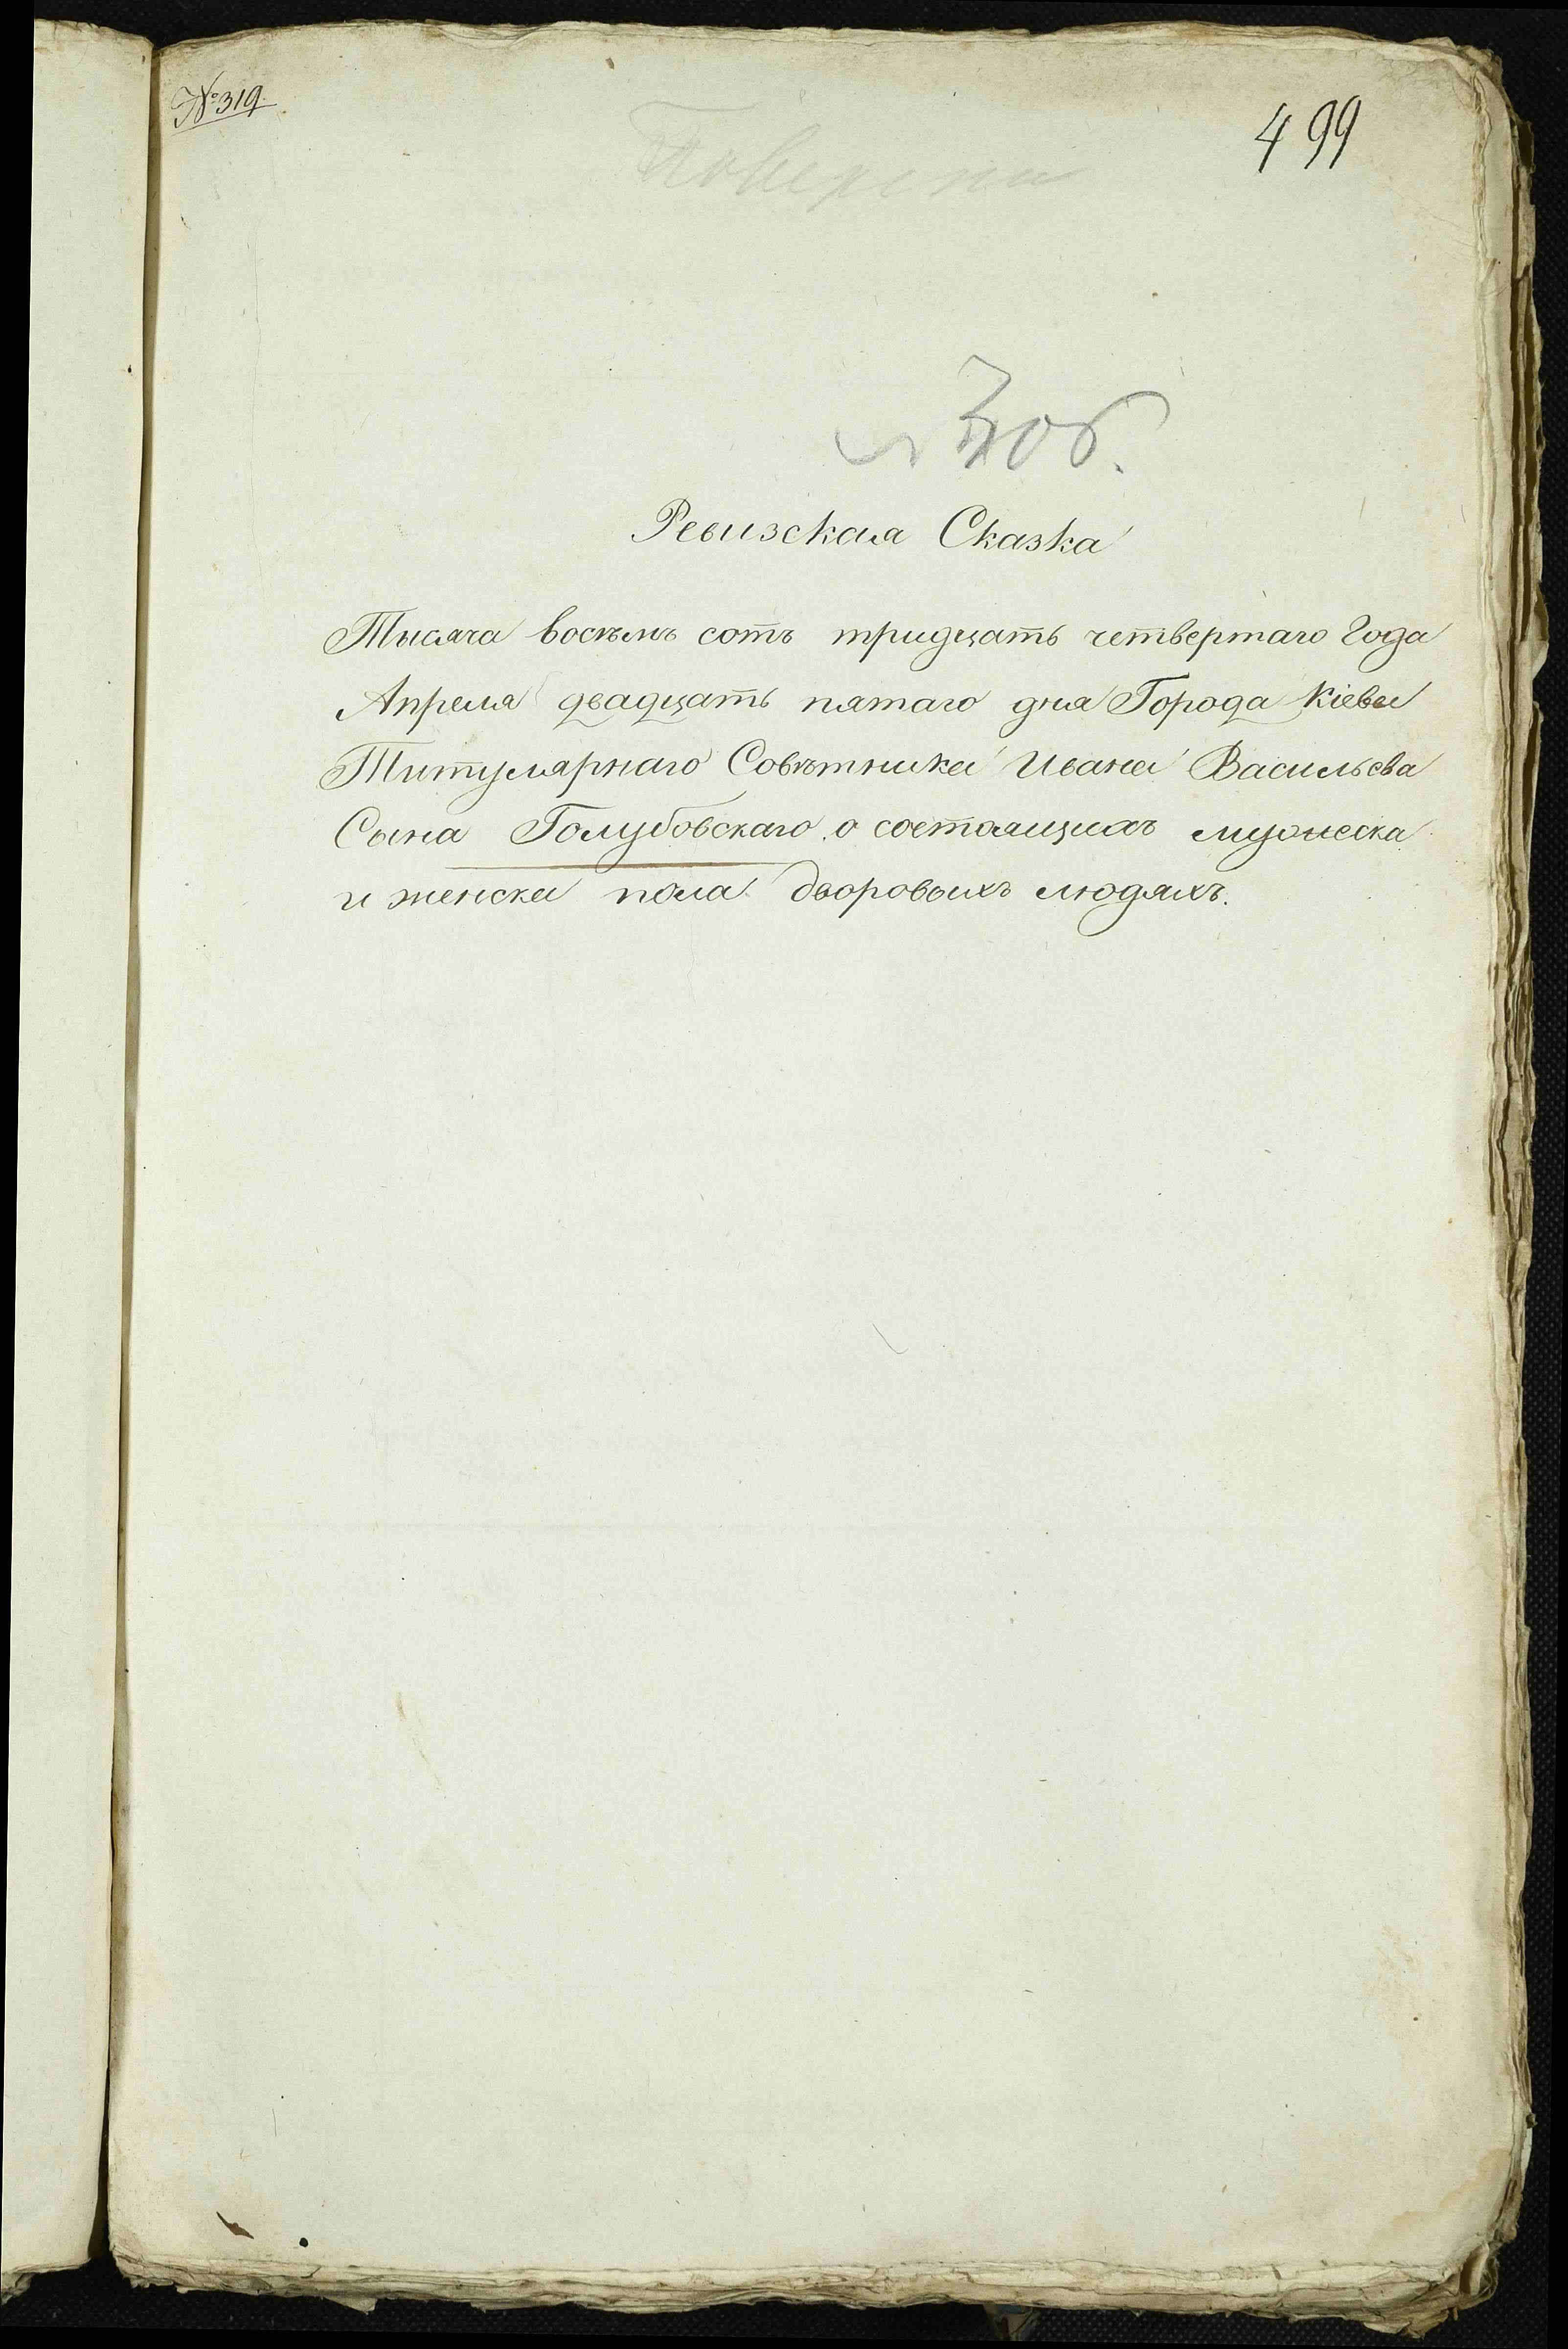 № 319.
499
Ревизская Сказка
Тысяча восѣмь сотъ тридцать четвертаго Года
Апреля двадцать пятаго дня Города Кіева
Титулярнаго Совѣтника Ивана Васильева
Сына Голубовскаго о состоящихъ мужеска
и женска пола дворовыхъ людяхъ.